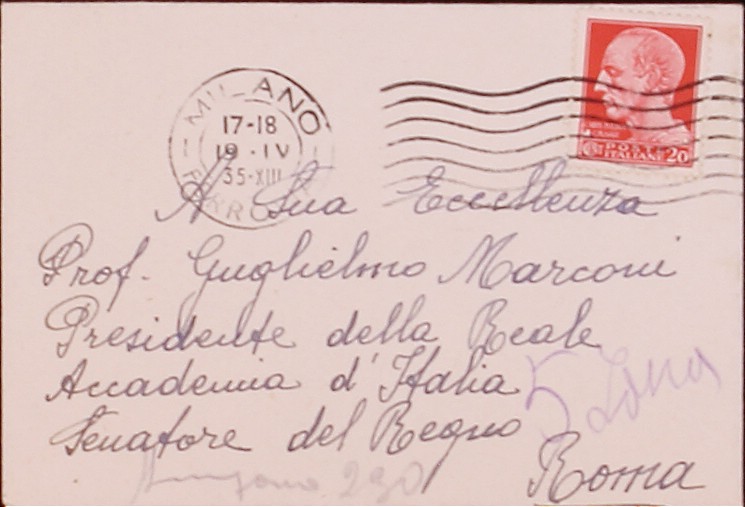 MILANO
17-18
19 · IV
35-XIII
POSTE
ITALIANE 20
A Sua Eccellenza
Prof. Guglielmo Marconi
Presidente della Reale
Accademia d'Italia
Senatore del Regno
5 Zona
Roma
290